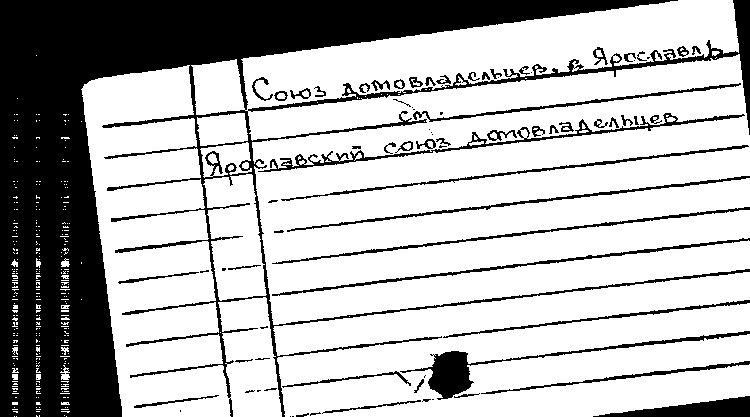 Союз домовладельцев. в Ярославль
см.
Ярославский союз домовладельцев